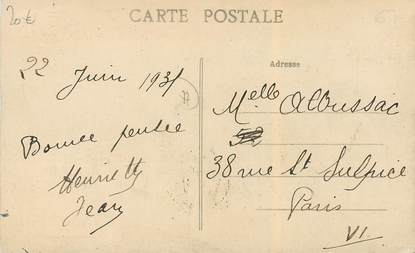 20€
CARTE POSTALE
22 Juin 1931
Bonne pensée
Henriette
Jean
Adresse
Melle Albussac
38 rue St Sulpice
Paris
VI